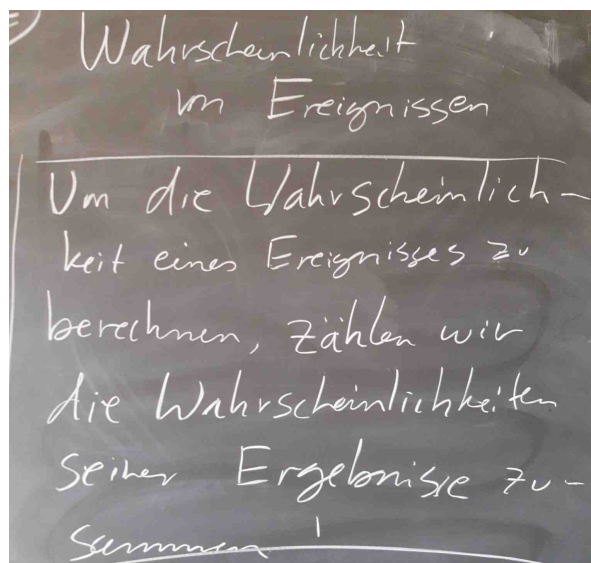 Wahrscheinlichkeit
von Ereignissen
Um die Wahrscheinlich-
keit eines Ereignisses zu
berechnen, zählen wir
die Wahrscheinlichkeiten
seiner Ergebnisse zu-
sammen